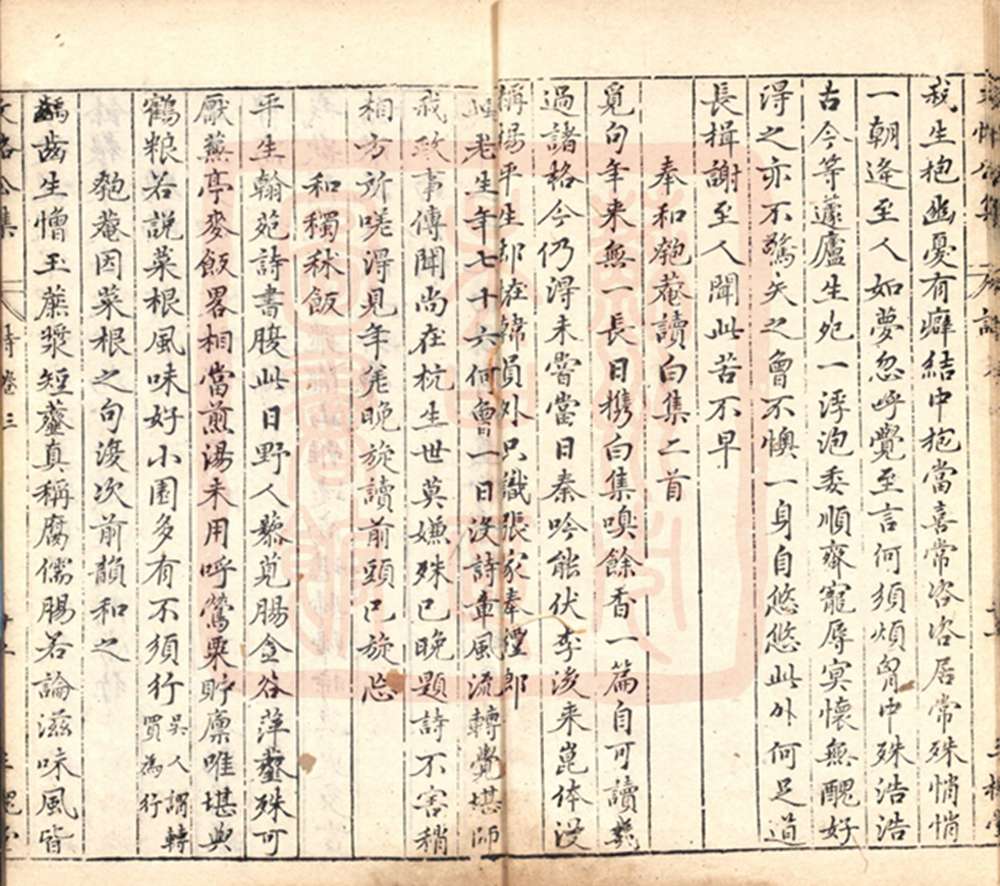 我生抱幽憂有癖結中抱當喜常咨咨居常殊悄悄
一朝逢至人如夢忽呼覺至言何須煩胷中殊浩浩
古今等蘧廬生死一浮泡委順齊寵辱冥懷無醜好
得之亦不驚失之曾不懊一身自悠悠此外何足道
長揖謝至人聞此苦不早
奉和匏菴讀白集二首
覓句年來無一長日携白集嗅餘香一篇自可讀
過諸格今仍得未嘗當日秦吟能伏李後来崑体没
稱楊平生郎在緯員外只識張家奉禮郎
此老生年七十六何曾一日沒詩章風流轉覺堪師
我致事傳聞尚在杭生世莫嫌殊已晚題詩不害稍
相方所嗟淂見年嵳晚旋讀前頭已旋忘
和糯秫飯
平生翰苑詩書腹此日野人藜莧腸金谷萍虀殊可
厭蕪亭麥飯畧相當煎湯未用呼鶯粟貯廪唯堪與
鶴粮若説菜根風味好小園多有不須行吳人謂轉買為行
匏菴因菜根之句復次前韻和之
齲齒生憎玉蔗漿短虀真稱腐儒腸若論滋味風皆
文恪公集 詩卷三